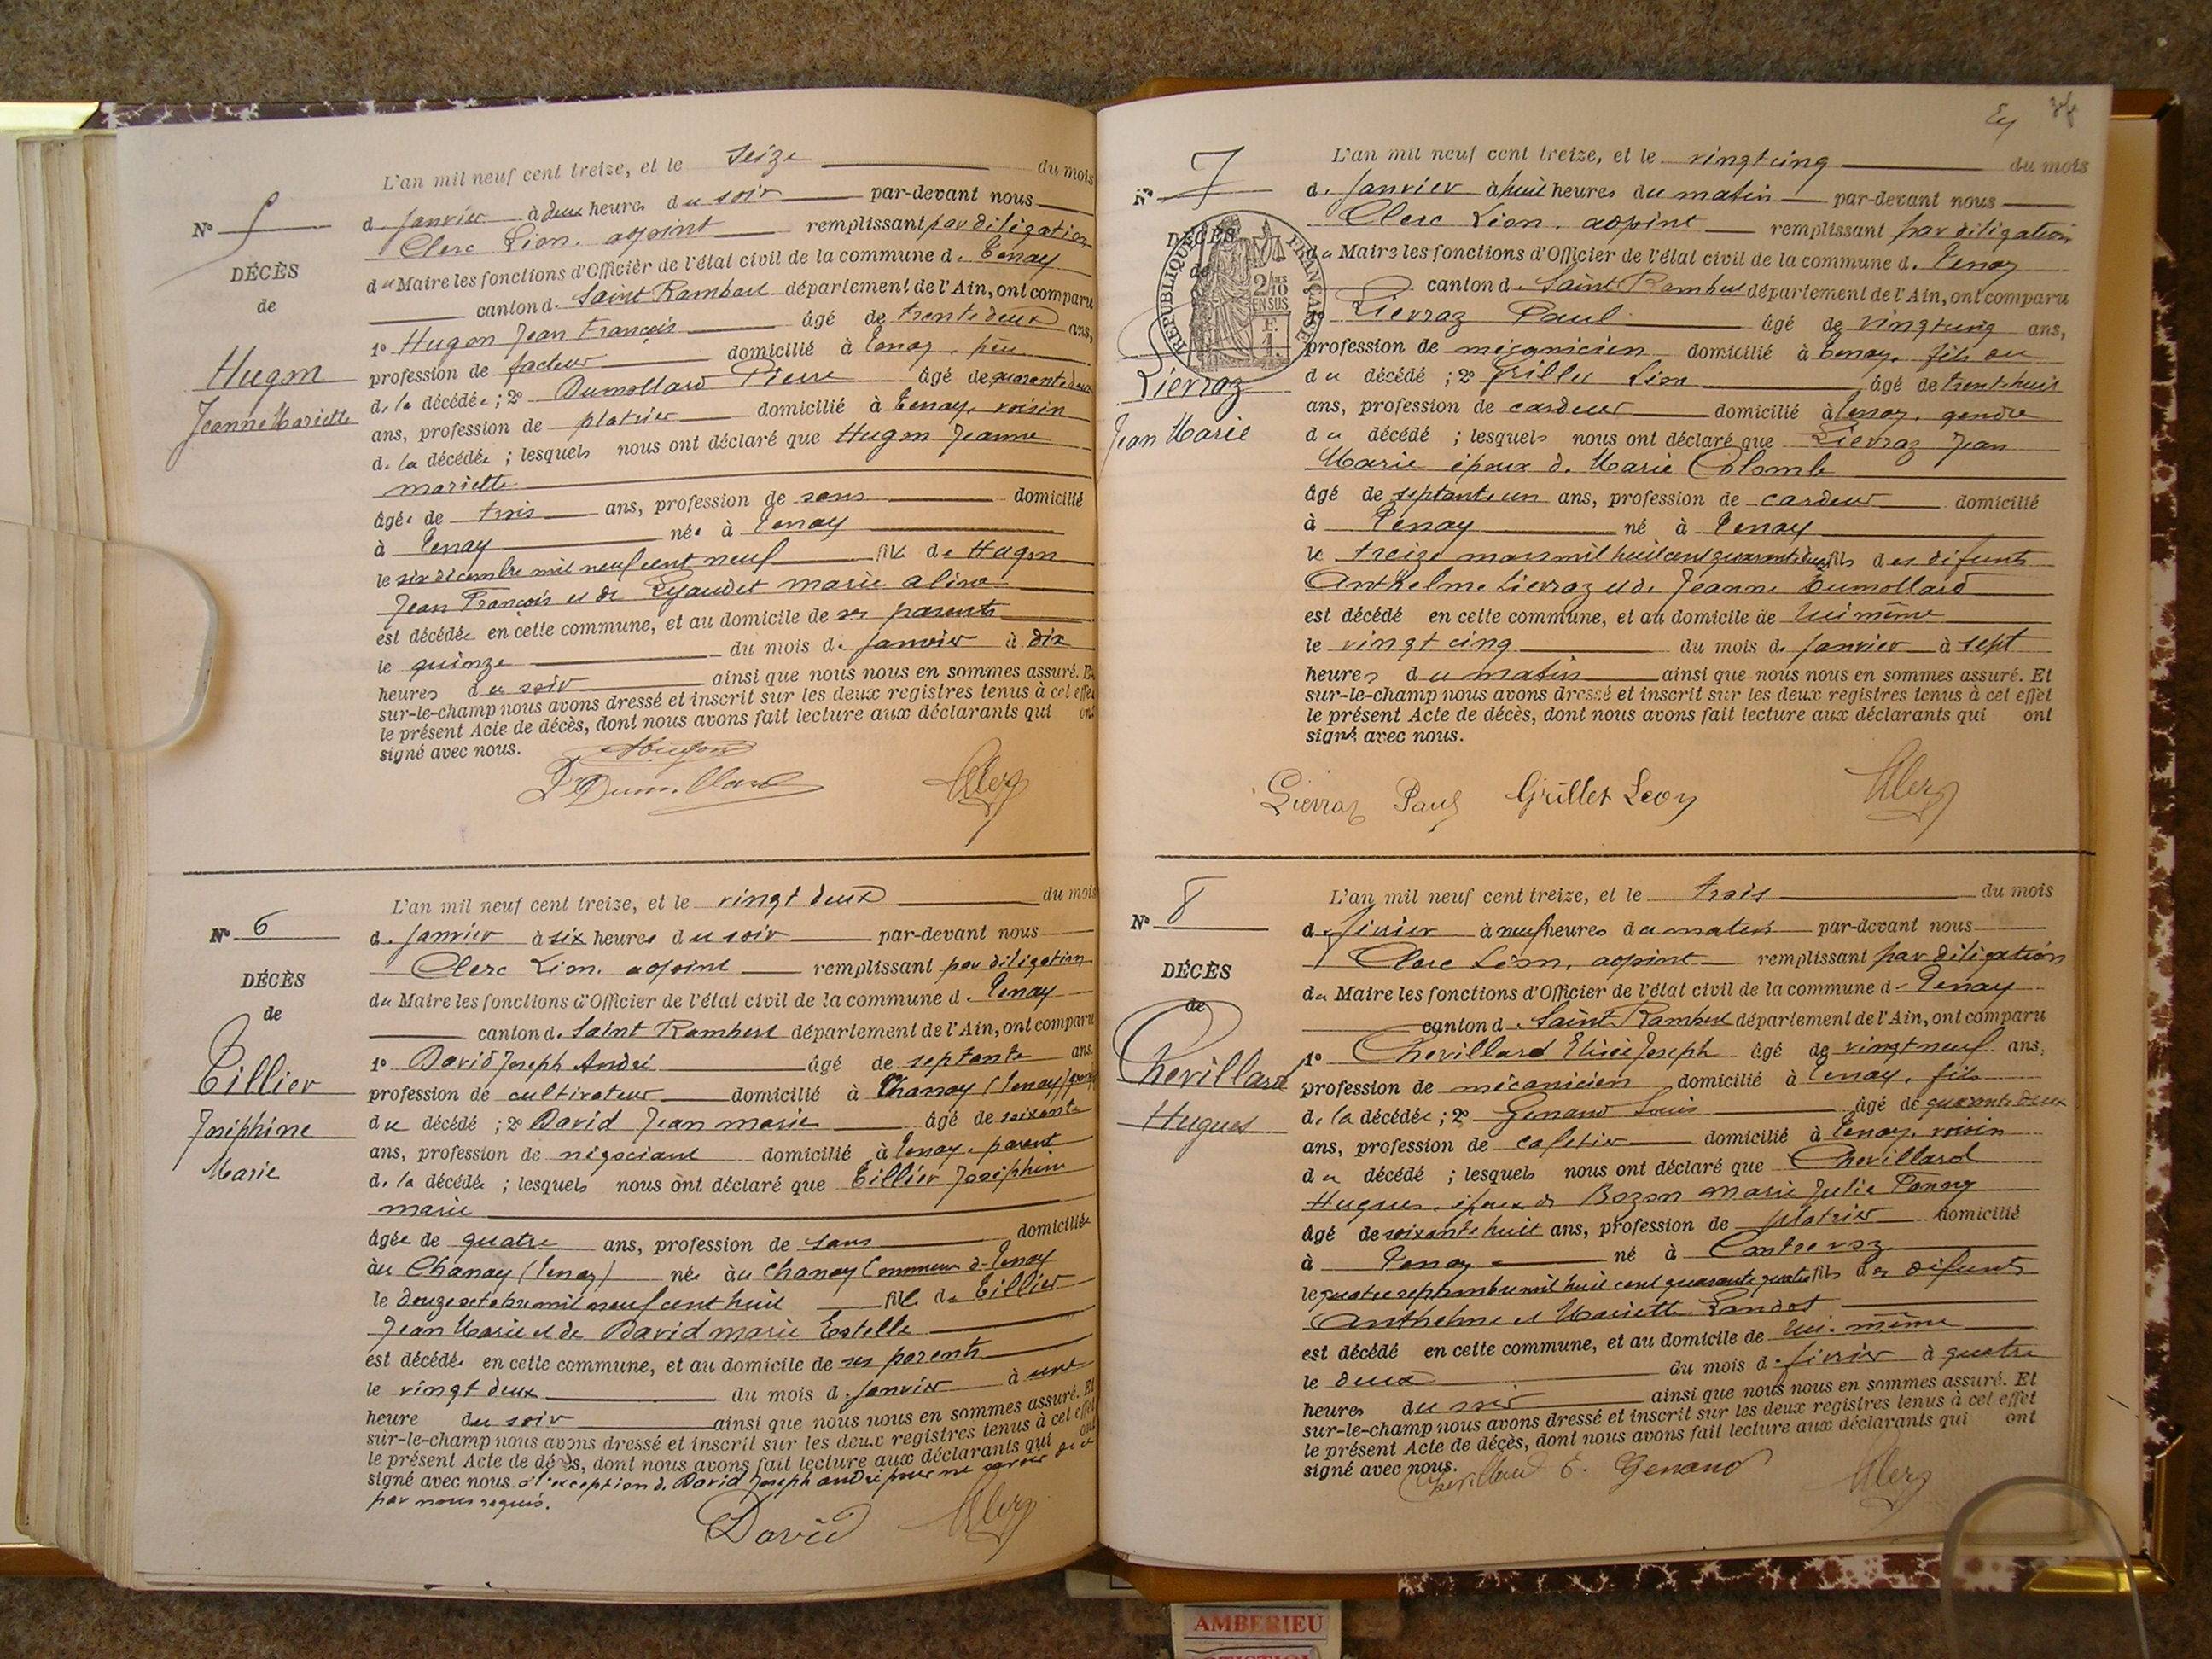 N° 5
DÉCÈS
de
Hugon
Jeanne Mariette
L'an mil neuf cent treize, et le seize du mois
de Janvier à deux heures du soir par-devant nous
Clerc Léon, adjoint remplissant par délégation
du Maire les fonctions d'Officier de l'état civil de la commune de Tenay
canton de Saint Rambert département de l'Ain, ont comparu
1° Hugon Jean François âgé de trente deux ans,
profession de facteur domicilié à Tenay, père
de la décédée ; 2° Dumollard Pierre âgé de quarante deux
ans, profession de platrier domicilié à Tenay, voisin
de la décédée ; lesquels nous ont déclaré que Hugon Jeanne
mariette
âgée de trois ans, profession de sans domicilié
à Tenay née à Tenay
le six décembre mil neuf cent neuf fille de Hugon
Jean François et de marie alina
est décédée en cette commune, et au domicile de ses parents
le quinze du mois de Janvier à dix
heures du soir ainsi que nous nous en sommes assuré. Et
sur-le-champ nous avons dressé et inscrit sur les deux registres tenus à cet effet
le présent Acte de décès, dont nous avons fait lecture aux déclarants qui ont
signé avec nous.
Hugon
P Dumollard Clerc
N° 6
DÉCÈS
de
Tillier
Joséphine
Marie
L'an mil neuf cent treize, et le vingt deux du mois
de Janvier à six heures du soir par-devant nous
Clerc Léon, adjoint remplissant par délégation
du Maire les fonctions d'Officier de l'état civil de la commune de Tenay
canton de Saint Rambert département de l'Ain, ont comparu
1° David Joseph André âgé de septante ans
profession de cultivateur domicilié à Chanay (Tenay)
du décédé ; 2° David Jean marie âgé de soixante
ans, profession de négociant domicilié à Tenay, parent
de la décédée ; lesquels nous ont déclaré que Tillier Joséphine
marie
âgée de quatre ans, profession de sans domiciliée
au Chanay (Tenay) née au Chanay Commune de Tenay
le douze octobre mil neuf cent huit fille de Tillier
Jean Marie et de David marie Estelle
est décédée en cette commune, et au domicile de ses parents
le vingt deux du mois de Janvier à une
heure du soir ainsi que nous nous en sommes assuré. Et
sur-le-champ nous avons dressé et inscrit sur les deux registres tenus à cet effet
le présent Acte de décès, dont nous avons fait lecture aux déclarants qui ont
signé avec nous à l'exception de David Joseph andré pour ne savoir de ce
par nous requis.
David Clerc
N° 7
DÉCÈS
de
RÉPUBLIQUE FRANÇAISE
2/10
EN SUS
Lievraz
Jean Marie
L'an mil neuf cent treize, et le vingt cinq du mois
de Janvier à huit heures du matin par-devant nous
Clerc Léon, adjoint remplissant par délégation
du Maire les fonctions d'Officier de l'état civil de la commune de Tenay
canton de Saint Rambert département de l'Ain, ont comparu
1° Lievraz Paul âgé de ans,
profession de mécanicien domicilié à Tenay, fils du
du décédé ; 2° Grillet Léon âgé de trente huit
ans, profession de cardeur domicilié à Tenay, gendre
du décédé ; lesquels nous ont déclaré que Lievraz Jean
Marie époux de Marie Colomb
âgé de septante un ans, profession de cardeur domicilié
à Tenay né à Tenay
le treize mars mil huit cent quarante deux fils des défunts
Anthelme Lievraz et de Jeanne Dumollard
est décédé en cette commune, et au domicile de lui même
le vingt cinq du mois de Janvier à sept
heures du matin ainsi que nous nous en sommes assuré. Et
sur-le-champ nous avons dressé et inscrit sur les deux registres tenus à cet effet
le présent Acte de décès, dont nous avons fait lecture aux déclarants qui ont
signé avec nous.
Lievraz Paul Grillet Leon Clerc
N° 8
DÉCÈS
de
Chevillard
Hugues
L'an mil neuf cent treize, et le trois du mois
de février à neuf heures du matin par-devant nous
Clerc Léon, adjoint remplissant par délégation
du Maire les fonctions d'Officier de l'état civil de la commune de Tenay
canton de Saint Rambert département de l'Ain, ont comparu
1° Chevillard Elisée Joseph âgé de vingt neuf ans,
profession de mécanicien domicilié à Tenay, fils
de la décédée ; 2° Genaud Louis âgé de quarante deux
ans, profession de cafetier domicilié à Tenay, voisin
du décédé ; lesquels nous ont déclaré que Chevillard
Hugues, époux de Bozon Marie Julie
âgé de soixante huit ans, profession de platrier domicilié
à Tenay né à
le quatre septembre mil huit cent quarante quatre fils des défunts
Anthelme et Mariette
est décédé en cette commune, et au domicile de lui-même
le deux du mois de février à quatre
heures du soir ainsi que nous nous en sommes assuré. Et
sur-le-champ nous avons dressé et inscrit sur les deux registres tenus à cet effet
le présent Acte de décès, dont nous avons fait lecture aux déclarants qui ont
signé avec nous.
Chevillard E. Genaud Clerc
AMBERIEU